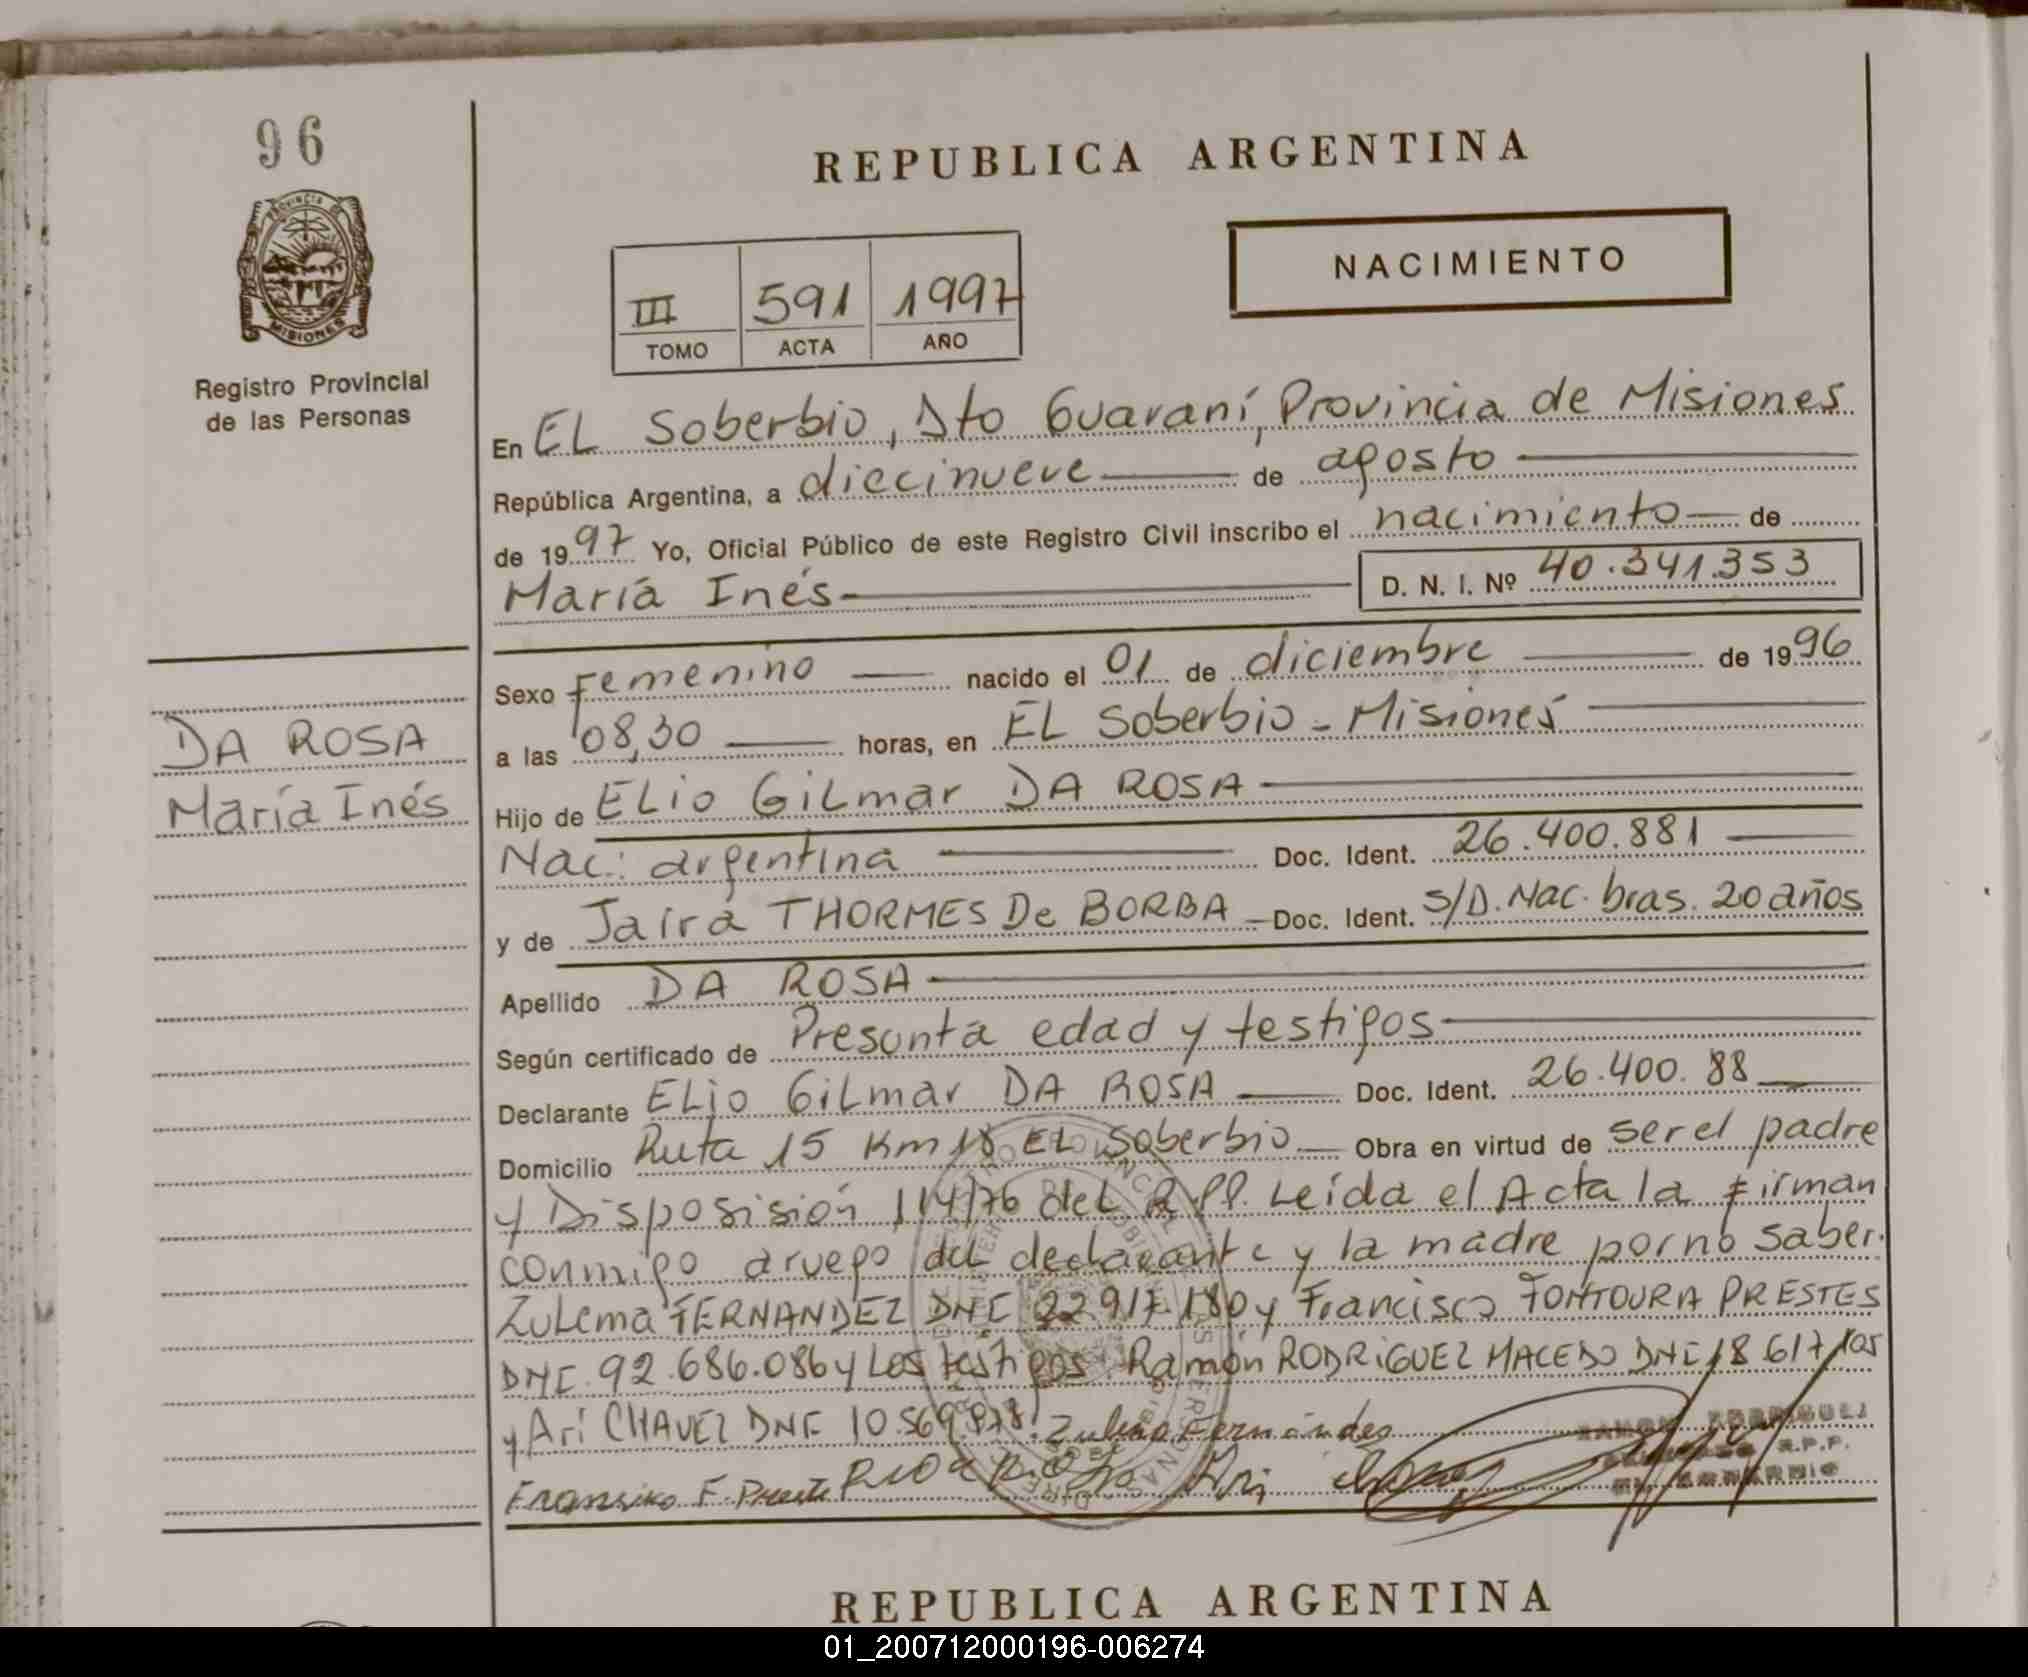 96
REPUBLICA ARGENTINA
PROVINCIA DE
MISIONES
Registro Provincial
de las Personas
NACIMIENTO
III 591 1997
TOMO ACTA AÑO
En EL Soberbio, Dto Guaraní, Provincia de Misiones
República Argentina, a diecinueve de agosto
de 1997 Yo, Oficial Público de este Registro Civil inscribo el nacimiento de
María Inés D. N. I. Nº 40.341.353
Sexo Femenino nacido el 01 de diciembre de 1996
a las 08,30 horas, en EL Soberbio - Misiones
DA ROSA
María Inés
Hijo de ELio GiLmar DA ROSA
Nac: argentina Doc. Ident. 26.400.881
y de Jaira THORMES De BORBA Doc. Ident. S/D. Nac. bras. 20 años
Apellido DA ROSA
Según certificado de Presunta edad y testigos
Declarante ELio GiLmar DA ROSA Doc. Ident. 26.400.88
Domicilio Ruta 15 Km 18 EL Soberbio Obra en virtud de ser el padre
y Disposisión 114/76 del R.P.P. Leída el Acta la Firman
conmigo a ruego del declarante y la madre por no saber.
Zulema FERNANDEZ DNI 22.917.180 y Francisco FONTOURA PRESTES
DNI. 92.686.086 y Los testigos. Ramón RODRIGUEZ MACEDO DNI 18 617 105
y Ari CHAVEZ DNI 10.569.878. Zulema Fernández
Fransisco F. Preste Ari
REPUBLICA ARGENTINA
01_200712000196-006274